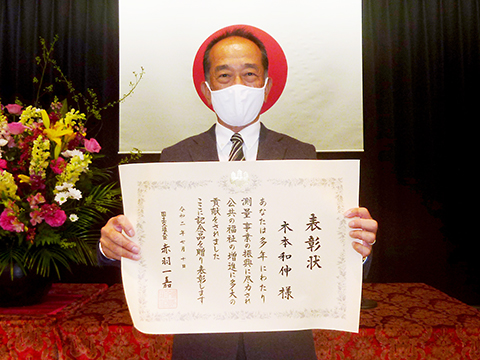 表彰状
木本和伸 様
あなたは多年にわたり
測量事業の振興に尽力され
公共の福祉の増進に多大の
貢献をされました
ここに記念品を贈り表彰します
令和二年七月十日
国土交通大臣 赤羽一嘉